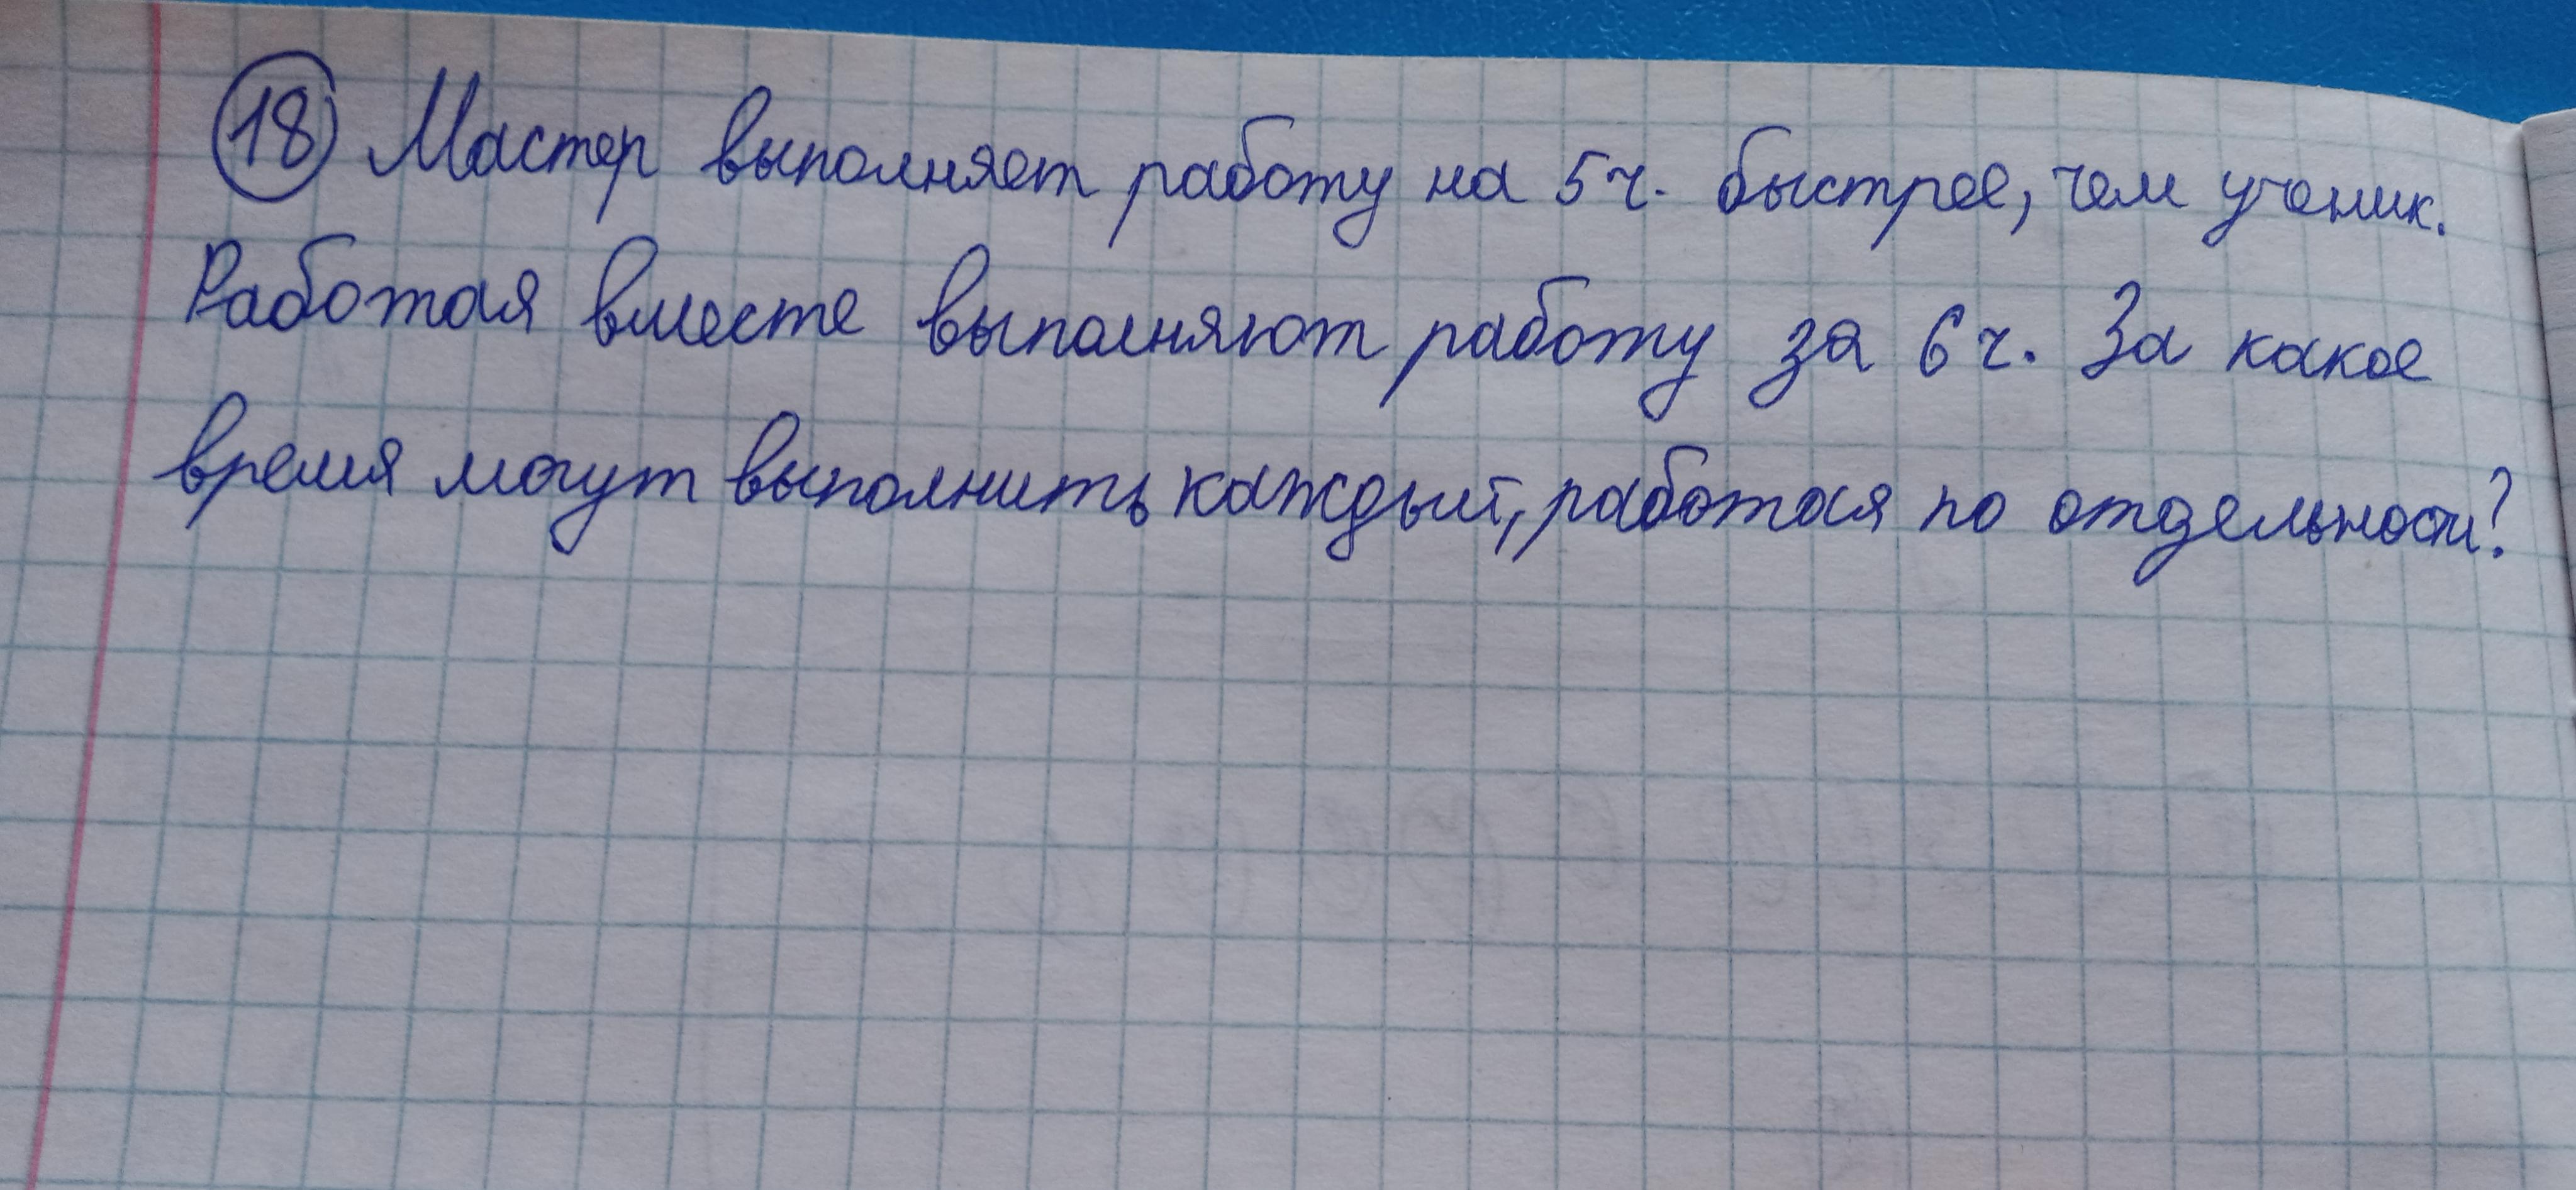 18 Мастер выполняет работу на 5ч. быстрее, чем ученик.
Работая вместе выполняют работу за 6ч. За какое
время могут выполнить каждый, работая по отдельности?